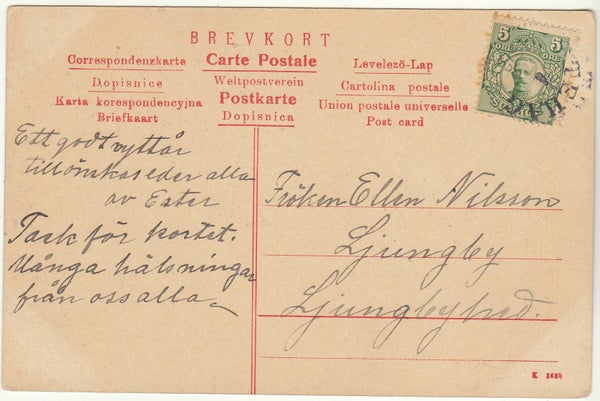 BREVKORT
Correspondenzkarte Carte Postale Levelezö-Lap
Dopisnice Weltpostverein Cartolina postale
Karta korespondencyjna Postkarte Union postale universelle
Briefkaart Dopisnica Post card
5 5
ÖRE ÖRE
Ett godt nyttår
tillönskas eder alla
av Ester
Tack för kortet.
Många hälsningar
från oss alla
Fröken Ellen Nilsson
Ljungby
Ljungbyhed.
K